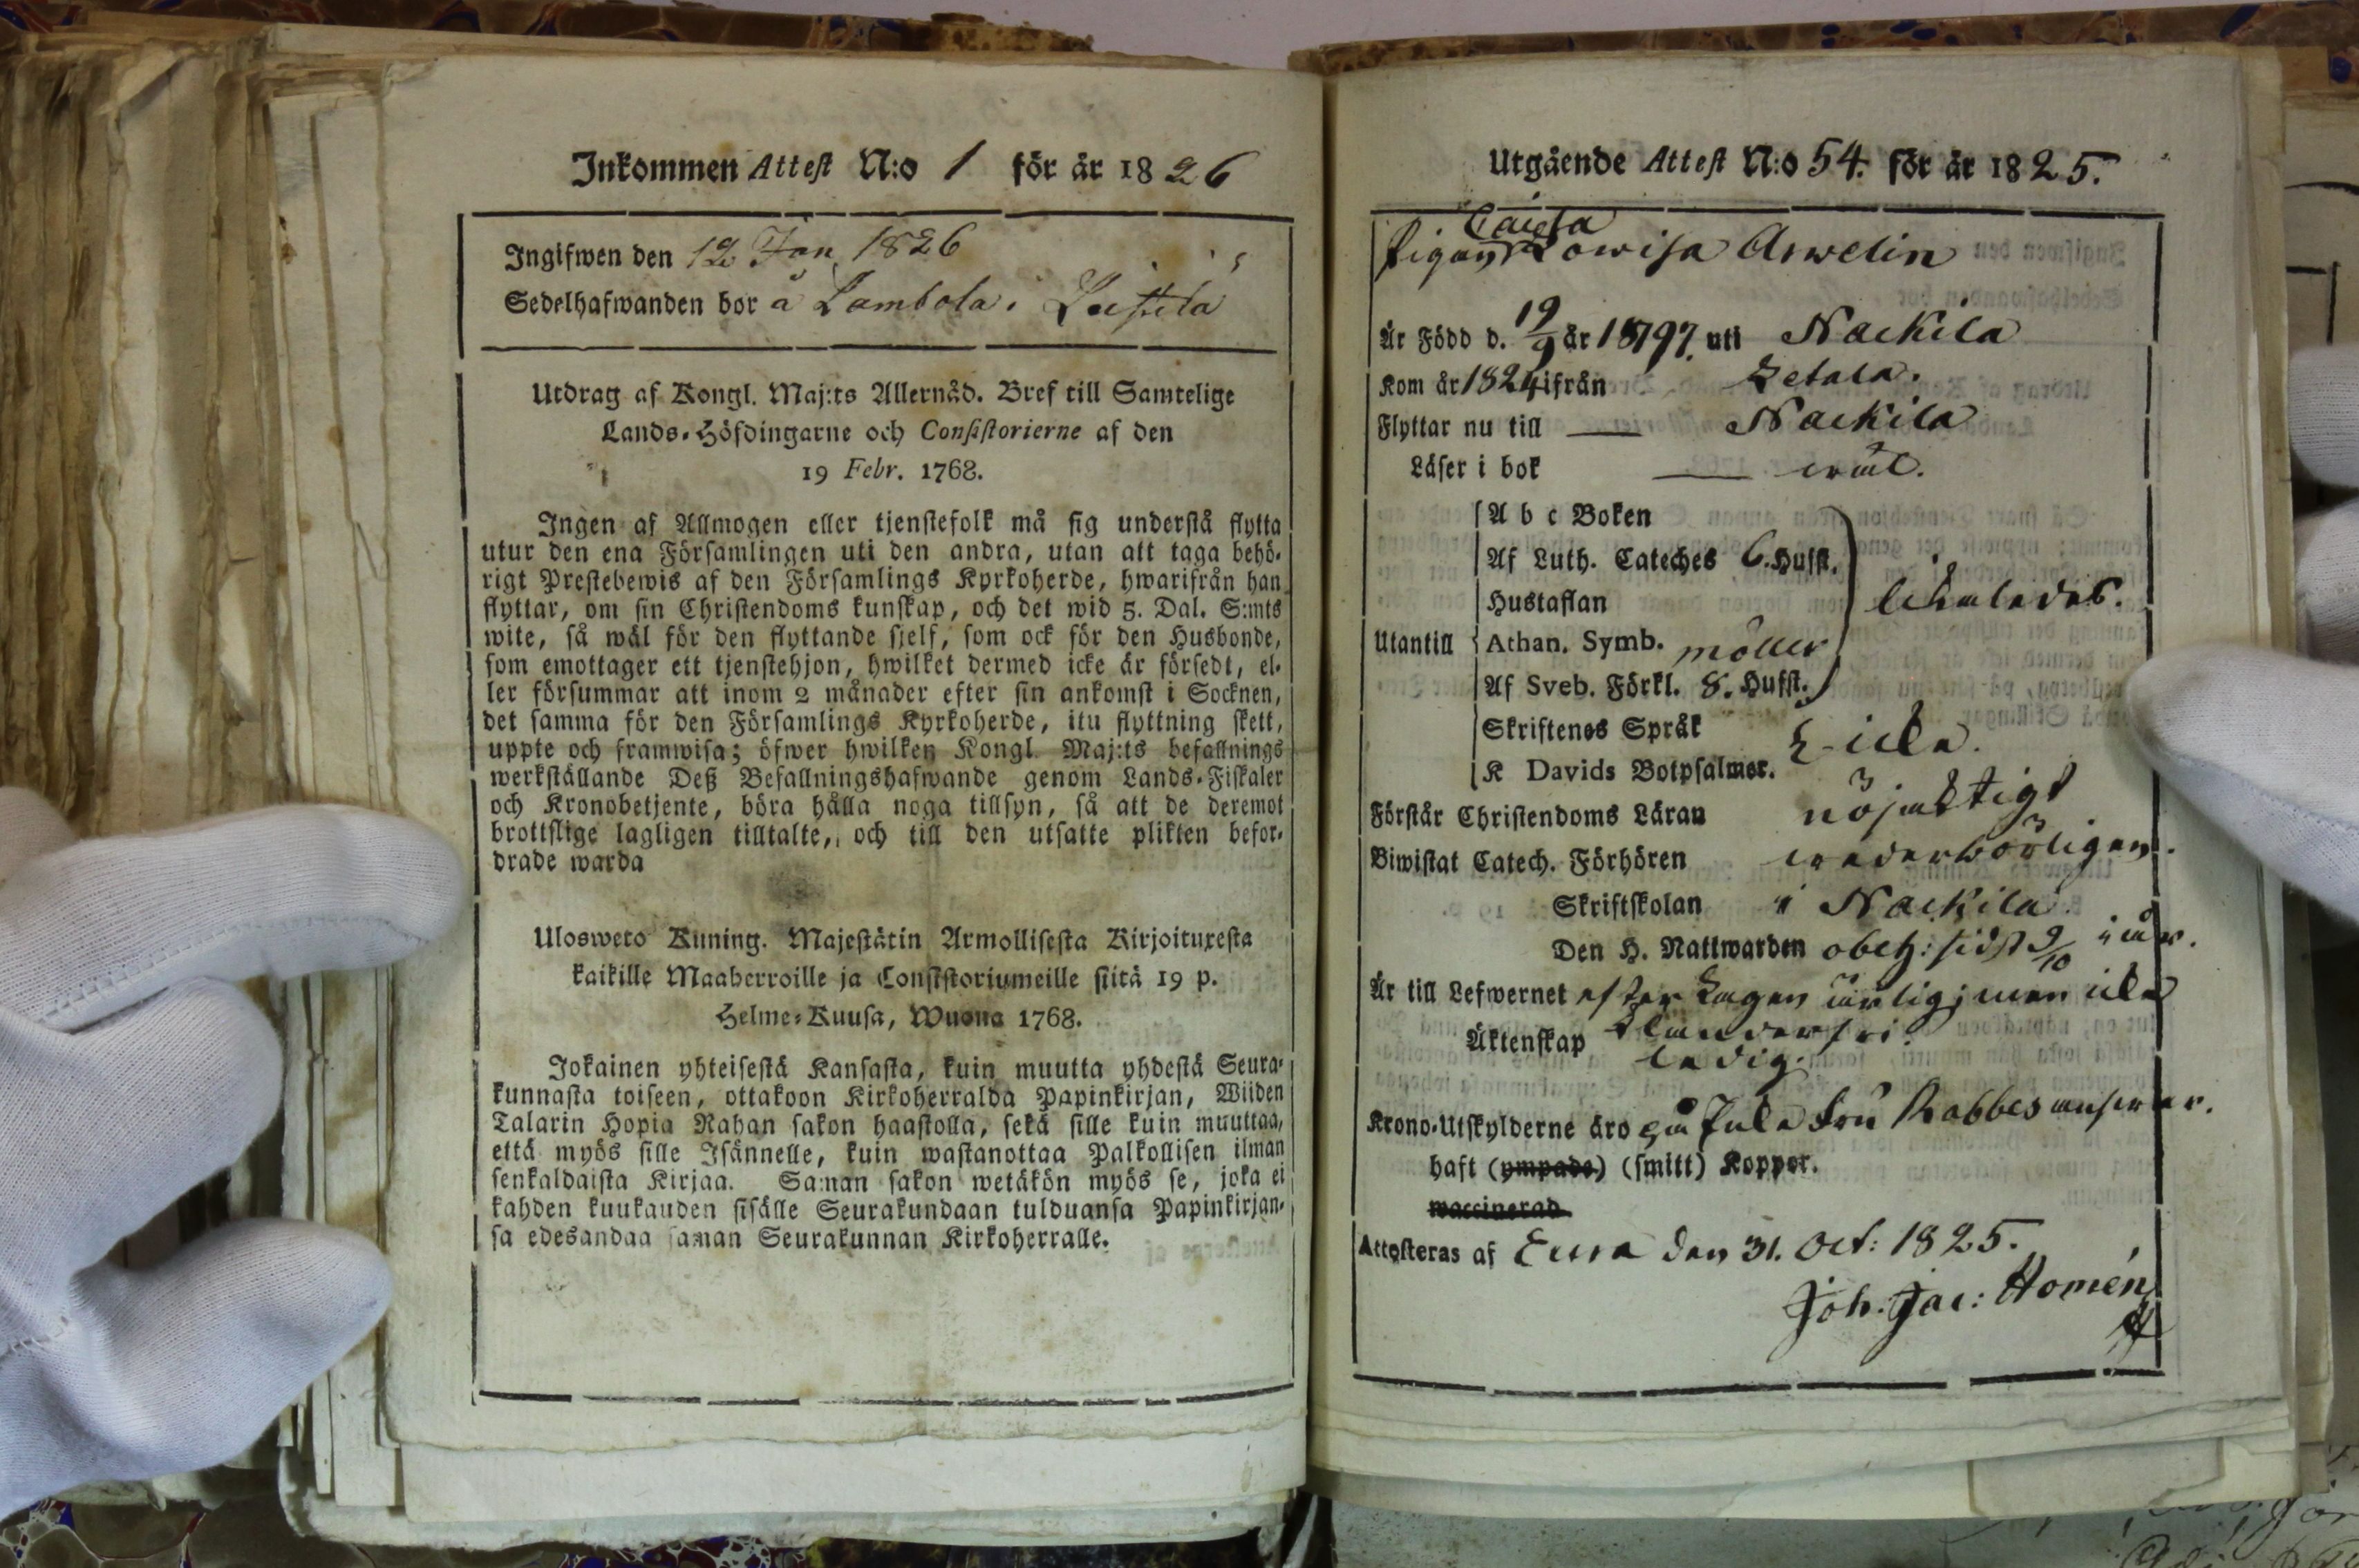 Inkommen Attest N:o 1 för år 1826
Ingifwen den 12 Jan 1826
Sedelhafwanden bor å Lambola i
Utdrag af Kongl. Maj:ts Allernåd. Bref till Samtelige
Lands-Höfdingarne och Consistorierne af den
19 Febr. 1768.
Ingen af Allmogen eller tjenstefolk må sig understå flytta
utur den ena Församlingen uti den andra, utan att taga behö-
rigt Prestebewis af den Församlings Kyrkoherde, hwarifrån han
flyttar, om sin Christendoms kunskap, och det wid 5. Dal. S:mts
wite, så wäl för den flyttande sjelf, som ock för den Husbonde,
som emottager ett tjenstehjon, hwilket dermed icke är försedt, el-
ler försummar att inom 2 månader efter sin ankomst i Socknen,
det samma för den Församlings Kyrkoherde, itu flyttning skett,
uppte och framwisa; öfwer hwilken Kongl. Maj:ts befallnings
werkställande Deß Befallningshafwande genom Lands-Fiskaler
och Kronobetjente, böra hålla noga tillsyn, så att de deremot
brottslige lagligen tilltalte, och till den utsatte plikten befor-
drade warda
Ulosweto Kuning. Majestätin Armollisesta Kirjoituxesta
kaikille Maaherroille ja Consistoriumeille siitä 19 p.
Helme-Kuusa, Wuona 1768.
Jokainen yhteisestä Kansasta, kuin muutta yhdestä Seura-
kunnasta toiseen, ottakoon Kirkoherralda Papinkirjan, Wiiden
Talarin Hopia Rahan sakon haastolla, sekä sille kuin muuttaa,
että myös sille Isännelle, kuin wastanottaa Palkollisen ilman
senkaldaista Kirjaa. Saman sakon wetäkön myös se, joka ei
kahden kuukauden sisälle Seurakundaan tulduansa Papinkirjan-
sa edesandaa saman Seurakunnan Kirkoherralle.
Utgående Attest N:o 54. för år 1825.
Caisa
Pigan Lowisa Arwelin
Är Född d. 19/9 år 1797. uti Nackila
Kom år 1824 ifrån Letala.
Flyttar nu till Nackila
Läser i bok wäl.
A b c Boken
Af Luth. Cateches 6. Hufst.
Hustaflan likaledes.
Utantill Athan. Symb. möller
Af Sveb. Förkl. 8. Hufst.
Skriftenes Språk
K Davids Botpsalmer. icke.
Förstår Christendoms Läran nöjaktigt
Biwistat Catech. Förhören wederbörligen.
Skriftskolan i Nackila
Den H. Nattwarden obeh: sidst 9/10 i år.
Är till Lefwernet efter Lagen ärlig; men icke
klanderfri.
Äktenskap ledig.
Krono-Utskylderne äro
haft (ympade) (smitt) Koppor.
vaccinerad
Attesteras af Eura den 31. Oct: 1825.
Joh: Jac: Homén